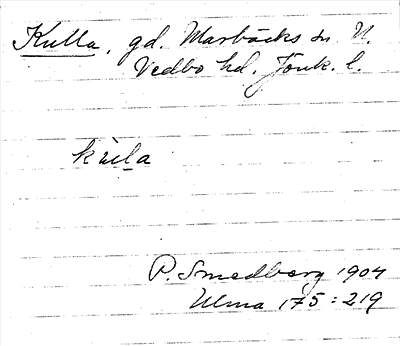 Kulla, gd. Marbäcks sn N.
Vedbo hd. Jönk. l.
kùla
P. Smedberg 1904
Ulma 175:219